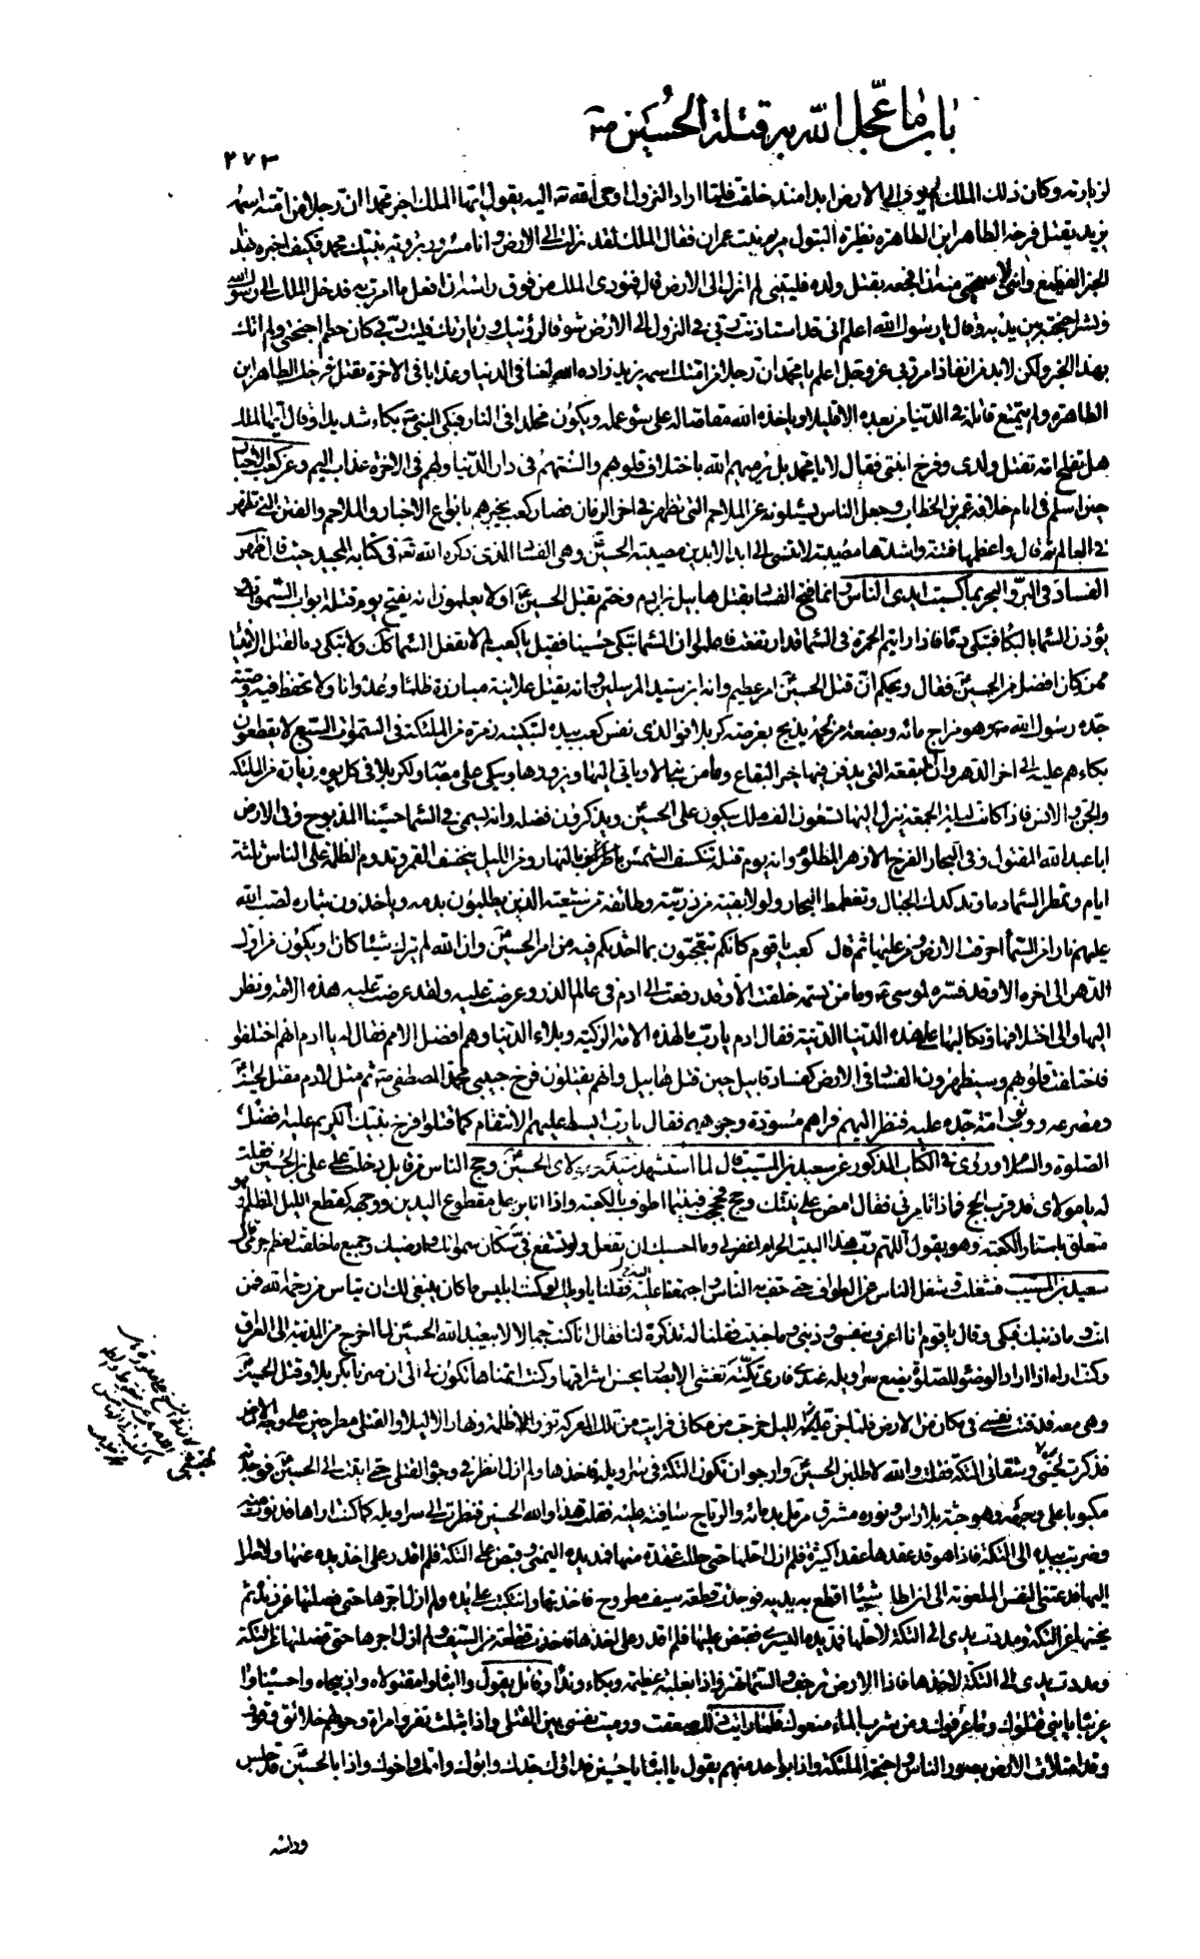 باب ما عجل الله به قتلة الحسين ص
٢٧٣
لزيارته وكان ذلك الملك لم ينزل إلى الارض ابدا منذ خلقت فلما اراد النزول اوحى الله تعالى اليه يقول ايها الملك اخبر محمدا ان رجلا من امته اسمه
يزيد يقتل فرخه الطاهر ابن الطاهرة نظيرة البتول مريم بنت عمران فقال الملك لقد نزلت الى الارض وانا مسرور برؤية نبيك محمد فكيف اخبره بهذا
الخبر الفظيع وانني لاستحيي منه ان افجعه بقتل ولده فليتني لم انزل الى الارض قال فنودي الملك من فوق راسه ان افعل ما امرت به فدخل الملك الى رسول الله
ونشر اجنحته بين يديه وقال يا رسول الله اعلم اني قد استاذنت ربي في النزول الى الارض شوقا لرؤيتك وزيارتك فليت ربي كان حطم اجنحتي ولم اتك
بهذا الخبر ولكن لا بد من انفاذ امر ربي عز وجل اعلم يا محمد ان رجلا من امتك اسمه يزيد زاده الله لعنا في الدنيا وعذابا في الاخرة يقتل فرخك الطاهر ابن
الطاهرة ولم يتمتع قاتله في الدنيا من بعده الا قليلا وياخذه الله مقاصا له على سوء عمله ويكون مخلدا في النار فبكى النبي ص بكاء شديدا وقال ايها الملك
هل تفلح امة تقتل ولدي وفرخ ابنتي فقال لا يا محمد بل يرميهم الله باختلاف قلوبهم والسنتهم في دار الدنيا ولهم في الاخرة عذاب اليم وعن كعب الاحبار
حين اسلم في ايام خلافة عمر بن الخطاب وجعل الناس يسئلونه عن الملاحم التي تظهر في اخر الزمان فصار كعب يخبرهم بانواع الاخبار والملاحم والفتن التي تظهر
في العالم ثم قال واعظمها فتنة واشدها مصيبة لا تنسى الى ابد الابدين مصيبة الحسين وهي الفساد الذي ذكره الله تعالى في كتابه المجيد حيث قال ظهر
الفساد في البر والبحر بما كسبت ايدي الناس وانما فتح الفساد بقتل هابيل بن ادم وختم بقتل الحسين او لا تعلمون انه يفتح يوم قتله ابواب السموات
يؤذن للسماء بالبكاء فتبكي دما فاذا رايتم الحمرة في السماء قد ارتفعت فاعلموا ان السماء تبكي حسينا فقيل يا كعب لم لا تفعل السماء كذلك ولا تبكي دما لقتل الانبياء
ممن كان افضل من الحسين فقال ويحكم ان قتل الحسين امر عظيم وانه ابن سيد المرسلين وانه يقتل علانية مبارزة ظلما وعدوانا ولا تحفظ فيه وصية
جده رسول الله ص وهو مزاج مائه وبضعة من لحمه يذبح بعرصة كربلا فوالذي نفس كعب بيده لتبكينه زمرة من الملئكة في السموات السبع لا يقطعون
بكاءهم عليه الى اخر الدهر وان البقعة التي يدفن فيها خير البقاع وما من نبي الا وياتي اليها ويزورها ويبكي على مصابه ولكربلا في كل يوم زيارة من الملئكة
والجن والانس فاذا كانت ليلة الجمعة ينزل اليها تسعون الف ملك يبكون على الحسين ويذكرون فضله وانه يسمى في السماء حسينا المذبوح وفي الارض
ابا عبد الله المقتول وفي البحار الفرخ الازهر المظلوم وانه يوم قتله تنكسف الشمس بالنهار ومن الليل ينخسف القمر وتدوم الظلمة على الناس ثلثة
ايام وتمطر السماء دما وتدكدك الجبال وتغطمط البحار ولولا بقية من ذريته وطائفة من شيعته الذين يطلبون بدمه وياخذون بثاره لصب الله
عليهم نارا من السماء احرقت الارض ومن عليها ثم قال كعب يا قوم كانكم تتعجبون بما احدثكم فيه من امر الحسين وان الله لم يترك شيئا كان او يكون من اول
الدهر الى اخره الا وقد فسره لموسى ع وما من نسمة خلقت الا وقد رفعت الى ادم في عالم الذر وعرضت عليه ولقد عرضت عليه هذه الامة ونظر
اليها والى اختلافها وتكالبها على هذه الدنيا الدنية فقال ادم يا رب ما لهذه الامة الزكية وبلاء الدنيا وهم افضل الامم فقال له يا ادم انهم اختلفوا
فاختلفت قلوبهم وسيظهرون الفساد في الارض كفساد قابيل حين قتل هابيل وانهم يقتلون فرخ حبيبي محمد المصطفى ص ثم مثل لادم مقتل الحسين
ومصرعه ووثوب امة جده عليه فنظر اليهم فراهم مسودة وجوههم فقال يا رب ابسط عليهم الانتقام كما قتلوا فرخ نبيك الكريم عليه افضل
الصلوة والسلام وروي في الكتاب المذكور عن سعيد بن المسيب قال لما استشهد سيدي ومولاي الحسين وحج الناس من قابل دخلت على علي بن الحسين فقلت
له يا مولاي قد قرب الحج فماذا تامرني فقال امض على نيتك وحج فحججت فبينما اطوف بالكعبة واذا انا برجل مقطوع اليدين ووجهه كقطع الليل المظلم وهو
متعلق باستار الكعبة وهو يقول اللهم رب هذا البيت الحرام اغفر لي وما احسبك ان تفعل ولو تشفع في سكان سمواتك وارضيك وجميع ما خلقت لعظم جرمي قال
سعيد بن المسيب فشغلت وشغل الناس عن الطواف حتى حف به الناس واجتمعنا عليه فقلنا يا ويلك لو كنت ابليس ما كان ينبغي لك ان تياس من رحمة الله فمن
انت وما ذنبك فبكى وقال يا قوم انا اعرف بنفسي وذنبي وما جنيت فقلنا له تذكره لنا فقال انا كنت جمالا لابي عبد الله الحسين لما خرج من المدينة الى العراق
وكنت اراه اذا اراد الوضوء للصلوة يضع سراويله عندي فارى تكته تغشي الابصار بحسن اشراقها وكنت اتمناها تكون لي الى ان صرنا بكربلا وقتل الحسين
وهي معه فدفنت نفسي في مكان من الارض فلما جن الليل خرجت من مكاني فرايت من تلك المعركة نورا لا ظلمة ونهارا لا ليلا والقتلى مطرحين على وجه الارض
فذكرت لخبثي وشقائي التكة فقلت والله لاطلبن الحسين وارجو ان تكون التكة في سراويله فاخذها ولم ازل انظر في وجوه القتلى حتى اتيت الى الحسين فوجدته
مكبوبا على وجهه وهو جثة بلا راس ونوره مشرق مرمل بدمائه والرياح سافية عليه فقلت هذا والله الحسين فنظرت الى سراويله كما كنت اراها فدنوت منه
وضربت بيدي الى التكة فاذا هو قد عقدها عقدا كثيرة فلم ازل احلها حتى حللت عقدة منها فمد يده اليمنى وقبض على التكة فلم اقدر على اخذ يده عنها ولا اصل
اليها فدعتني النفس الملعونة الى ان اطلب شيئا اقطع به يديه فوجدت قطعة سيف مطروح فاخذتها واتكيت على يده ولم ازل احزها حتى فصلتها عن زنده ثم
نحيتها عن التكة ومددت يدي الى التكة لاحلها فمد يده اليسرى فقبض عليها فلم اقدر على اخذها فاخذت قطعة السيف ولم ازل احزها حتى فصلتها عن التكة
ومددت يدي الى التكة لاخذها فاذا الارض ترجف والسماء تهتز واذا بغلبة عظيمة وبكاء ونداء وقائل يقول وا ابناه وا مقتولاه وا ذبيحاه وا حسيناه وا
غريباه يا بني قتلوك وما عرفوك ومن شرب الماء منعوك فلما رايت ذلك صعقت ورميت نفسي بين القتلى واذا بثلث نفر وامراة وحولهم خلائق وقوف
وقد امتلات الارض بصور الناس واجنحة الملئكة واذا بواحد منهم يقول يا ابناه يا حسين فداؤك جدك وابوك وامك واخوك واذا بالحسين قد جلس
وراسه